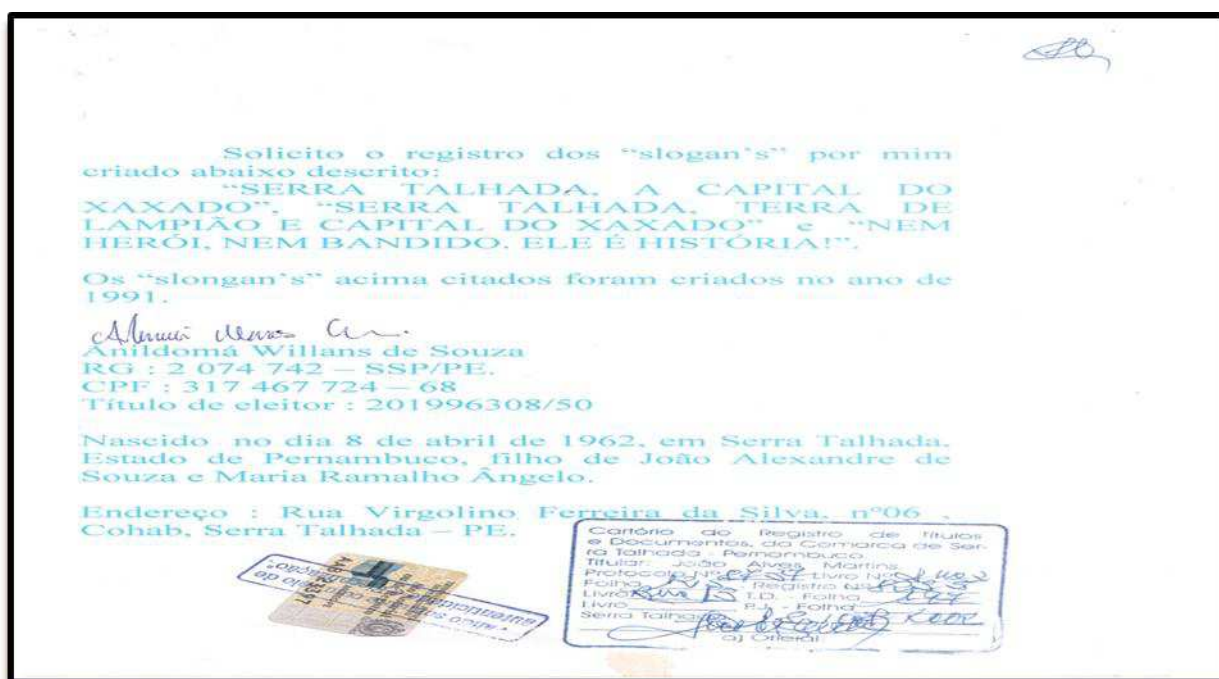 Solicito o registro dos “slogan's” por mim
criado abaixo descrito:
“SERRA TALHADA, A CAPITAL DO
XAXADO”, “SERRA TALHADA, TERRA DE
LAMPIÃO E CAPITAL DO XAXADO” e “NEM
HERÓI, NEM BANDIDO. ELE É HISTÓRIA!”.
Os “slongan's” acima citados foram criados no ano de
1991.
Anildomá Willans de Souza
RG : 2 074 742 – SSP/PE.
CPF : 317 467 724 – 68
Título de eleitor : 201996308/50
Nascido no dia 8 de abril de 1962, em Serra Talhada,
Estado de Pernambuco, filho de João Alexandre de
Souza e Maria Ramalho Ângelo.
Endereço : Rua Virgolino Ferreira da Silva, nº06 ,
Cohab, Serra Talhada – PE.
Cartório do Registro de Títulos
e Documentos, da Comarca de Ser-
ra Talhada - Pernambuco
Titular: João Alves Martins
Protocolo Nº Livro Nº
Folha Registro Nº
Livro T.D. - Folha
Livro P.J. - Folha
Serra Talhada
a) Oficial